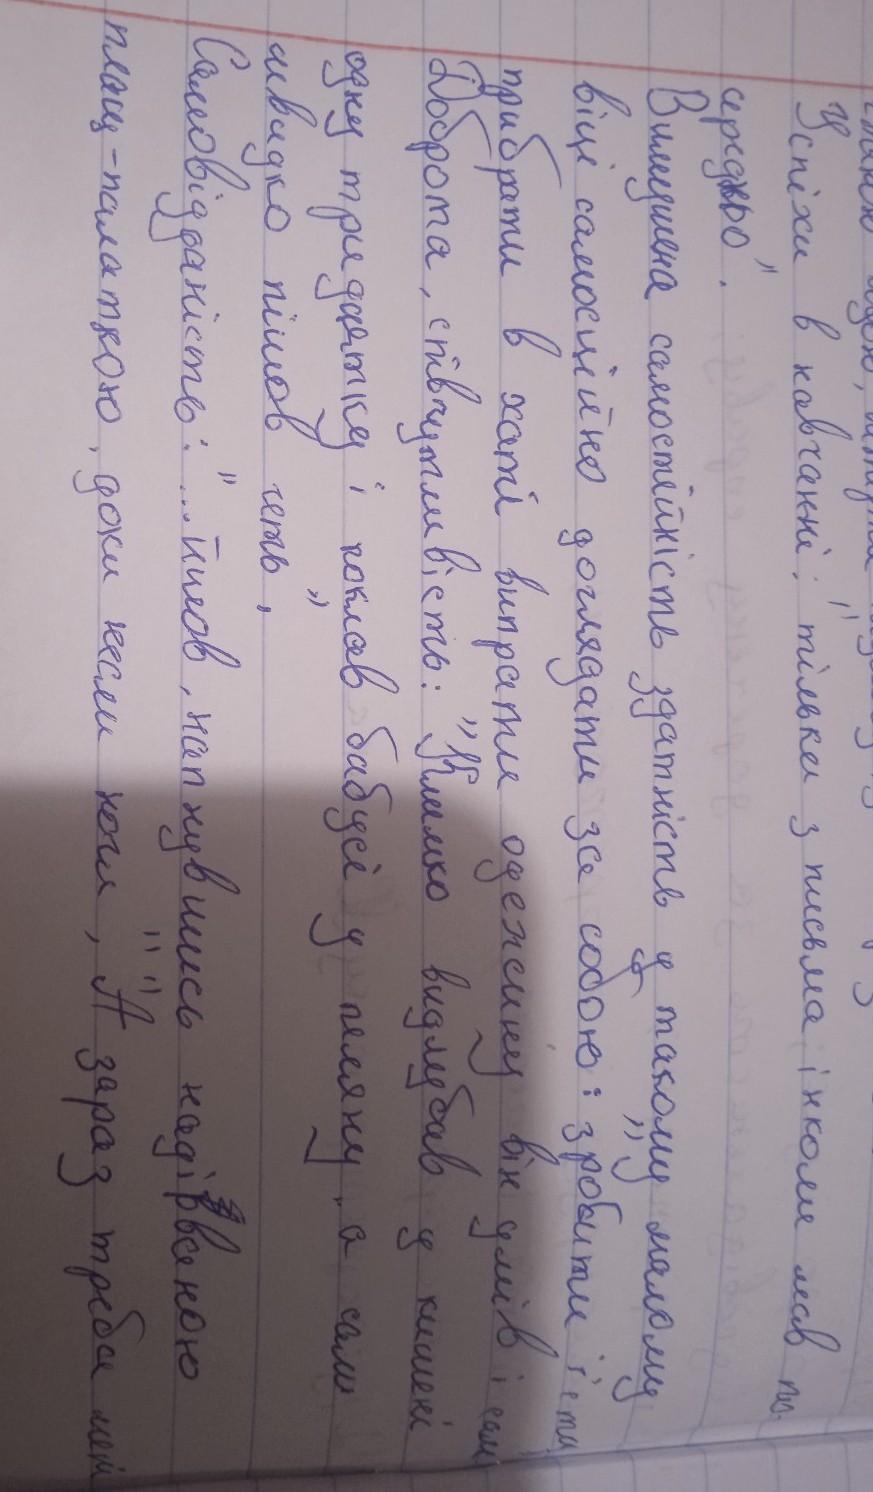 Успіхи в навчанні: "тільки з письма інколи мав по-
середньо".
Вимушена самостійність здатність у такому малому
віці самостійно доглядати за собою: "зробити їсти
прибрати в хаті випрати одежину він умів і сам
Доброта, співчутливість: "Климко видлубав у кишені
одну тридцятку і поклав бабусі у пелену, а сам
швидко пішов геть"
Самовідданість: "...йшов, напнувшись надірваною
плащ-палаткою, доки несли ноги", "А зараз треба мені